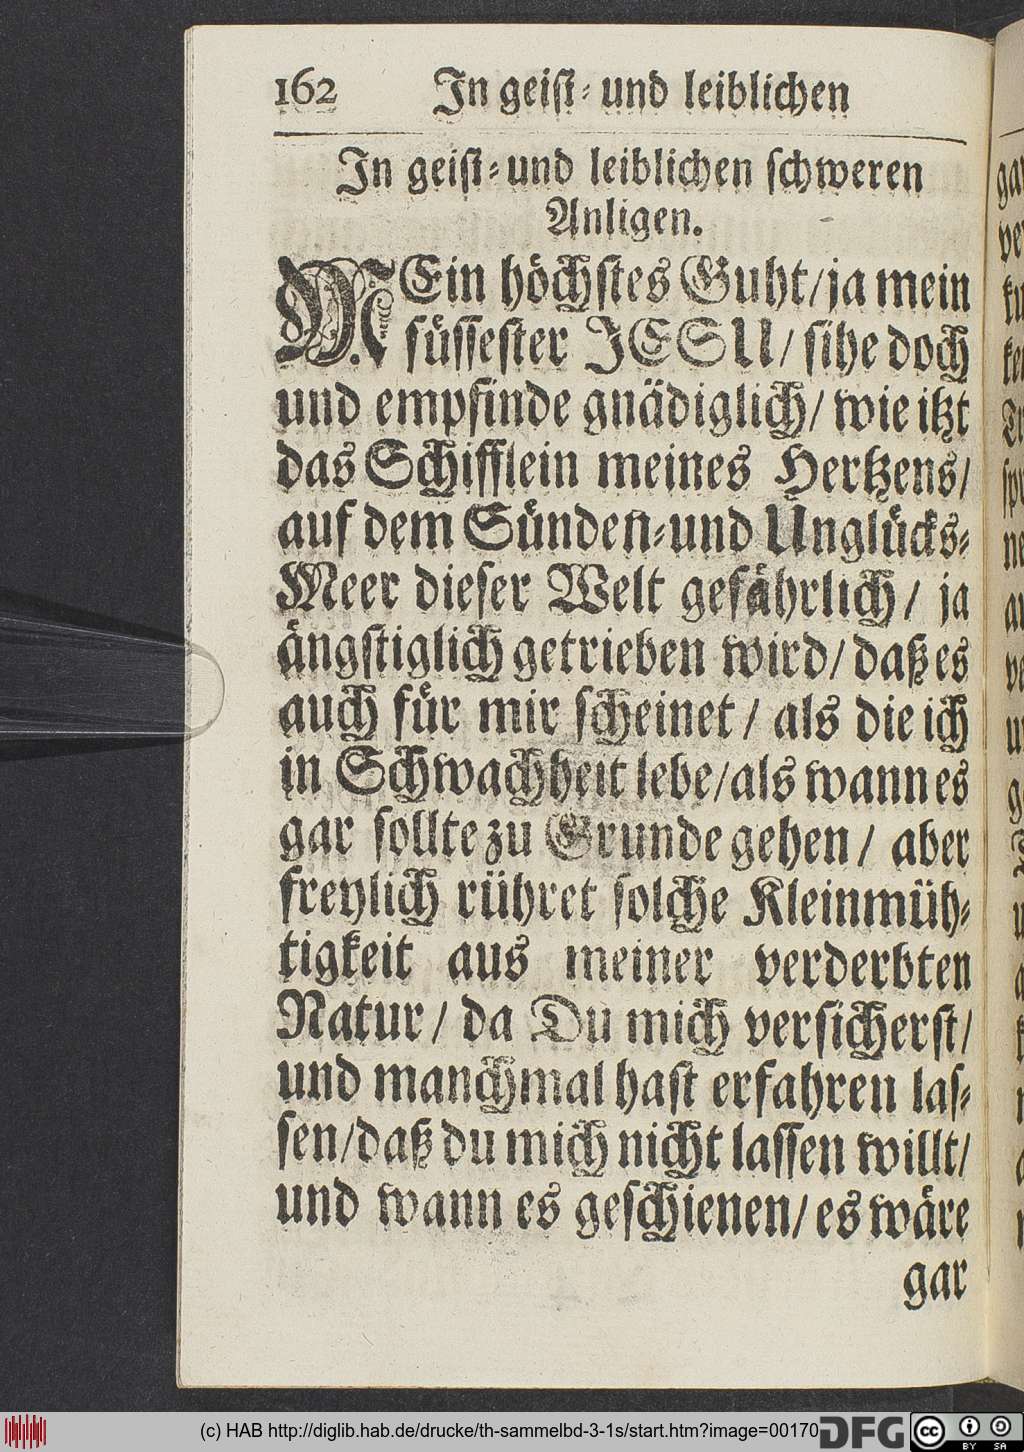 162 In geiſt- und leiblichen
In geiſt-und leiblichen ſchweren
Anligen.
MEin höchſtes Guht/ja mein
ſüſſeſter JESU/ ſihe doch
und empfinde gnädiglich/ wie itzt
das Schifflein meines Hertzens/
auf dem Sünden-und Unglücks-
Meer dieſer Welt gefährlich/ ja
ängſtiglich getrieben wird/ daß es
auch für mir ſcheinet/ als die ich
in Schwachheit lebe/als wann es
gar ſollte zu Grunde gehen/ aber
freylich rühret ſolche Kleinmüh-
tigkeit aus meiner verderbten
Natur/ da Du mich verſicherſt/
und manchmal haſt erfahren laſ-
ſen/daß du mich nicht laſſen willt/
und wann es geſchienen/ es wäre
gar
(c) HAB http://diglib.hab.de/drucke/th-sammelbd-3-1s/start.htm?image=00170
DFG
cc BY SA